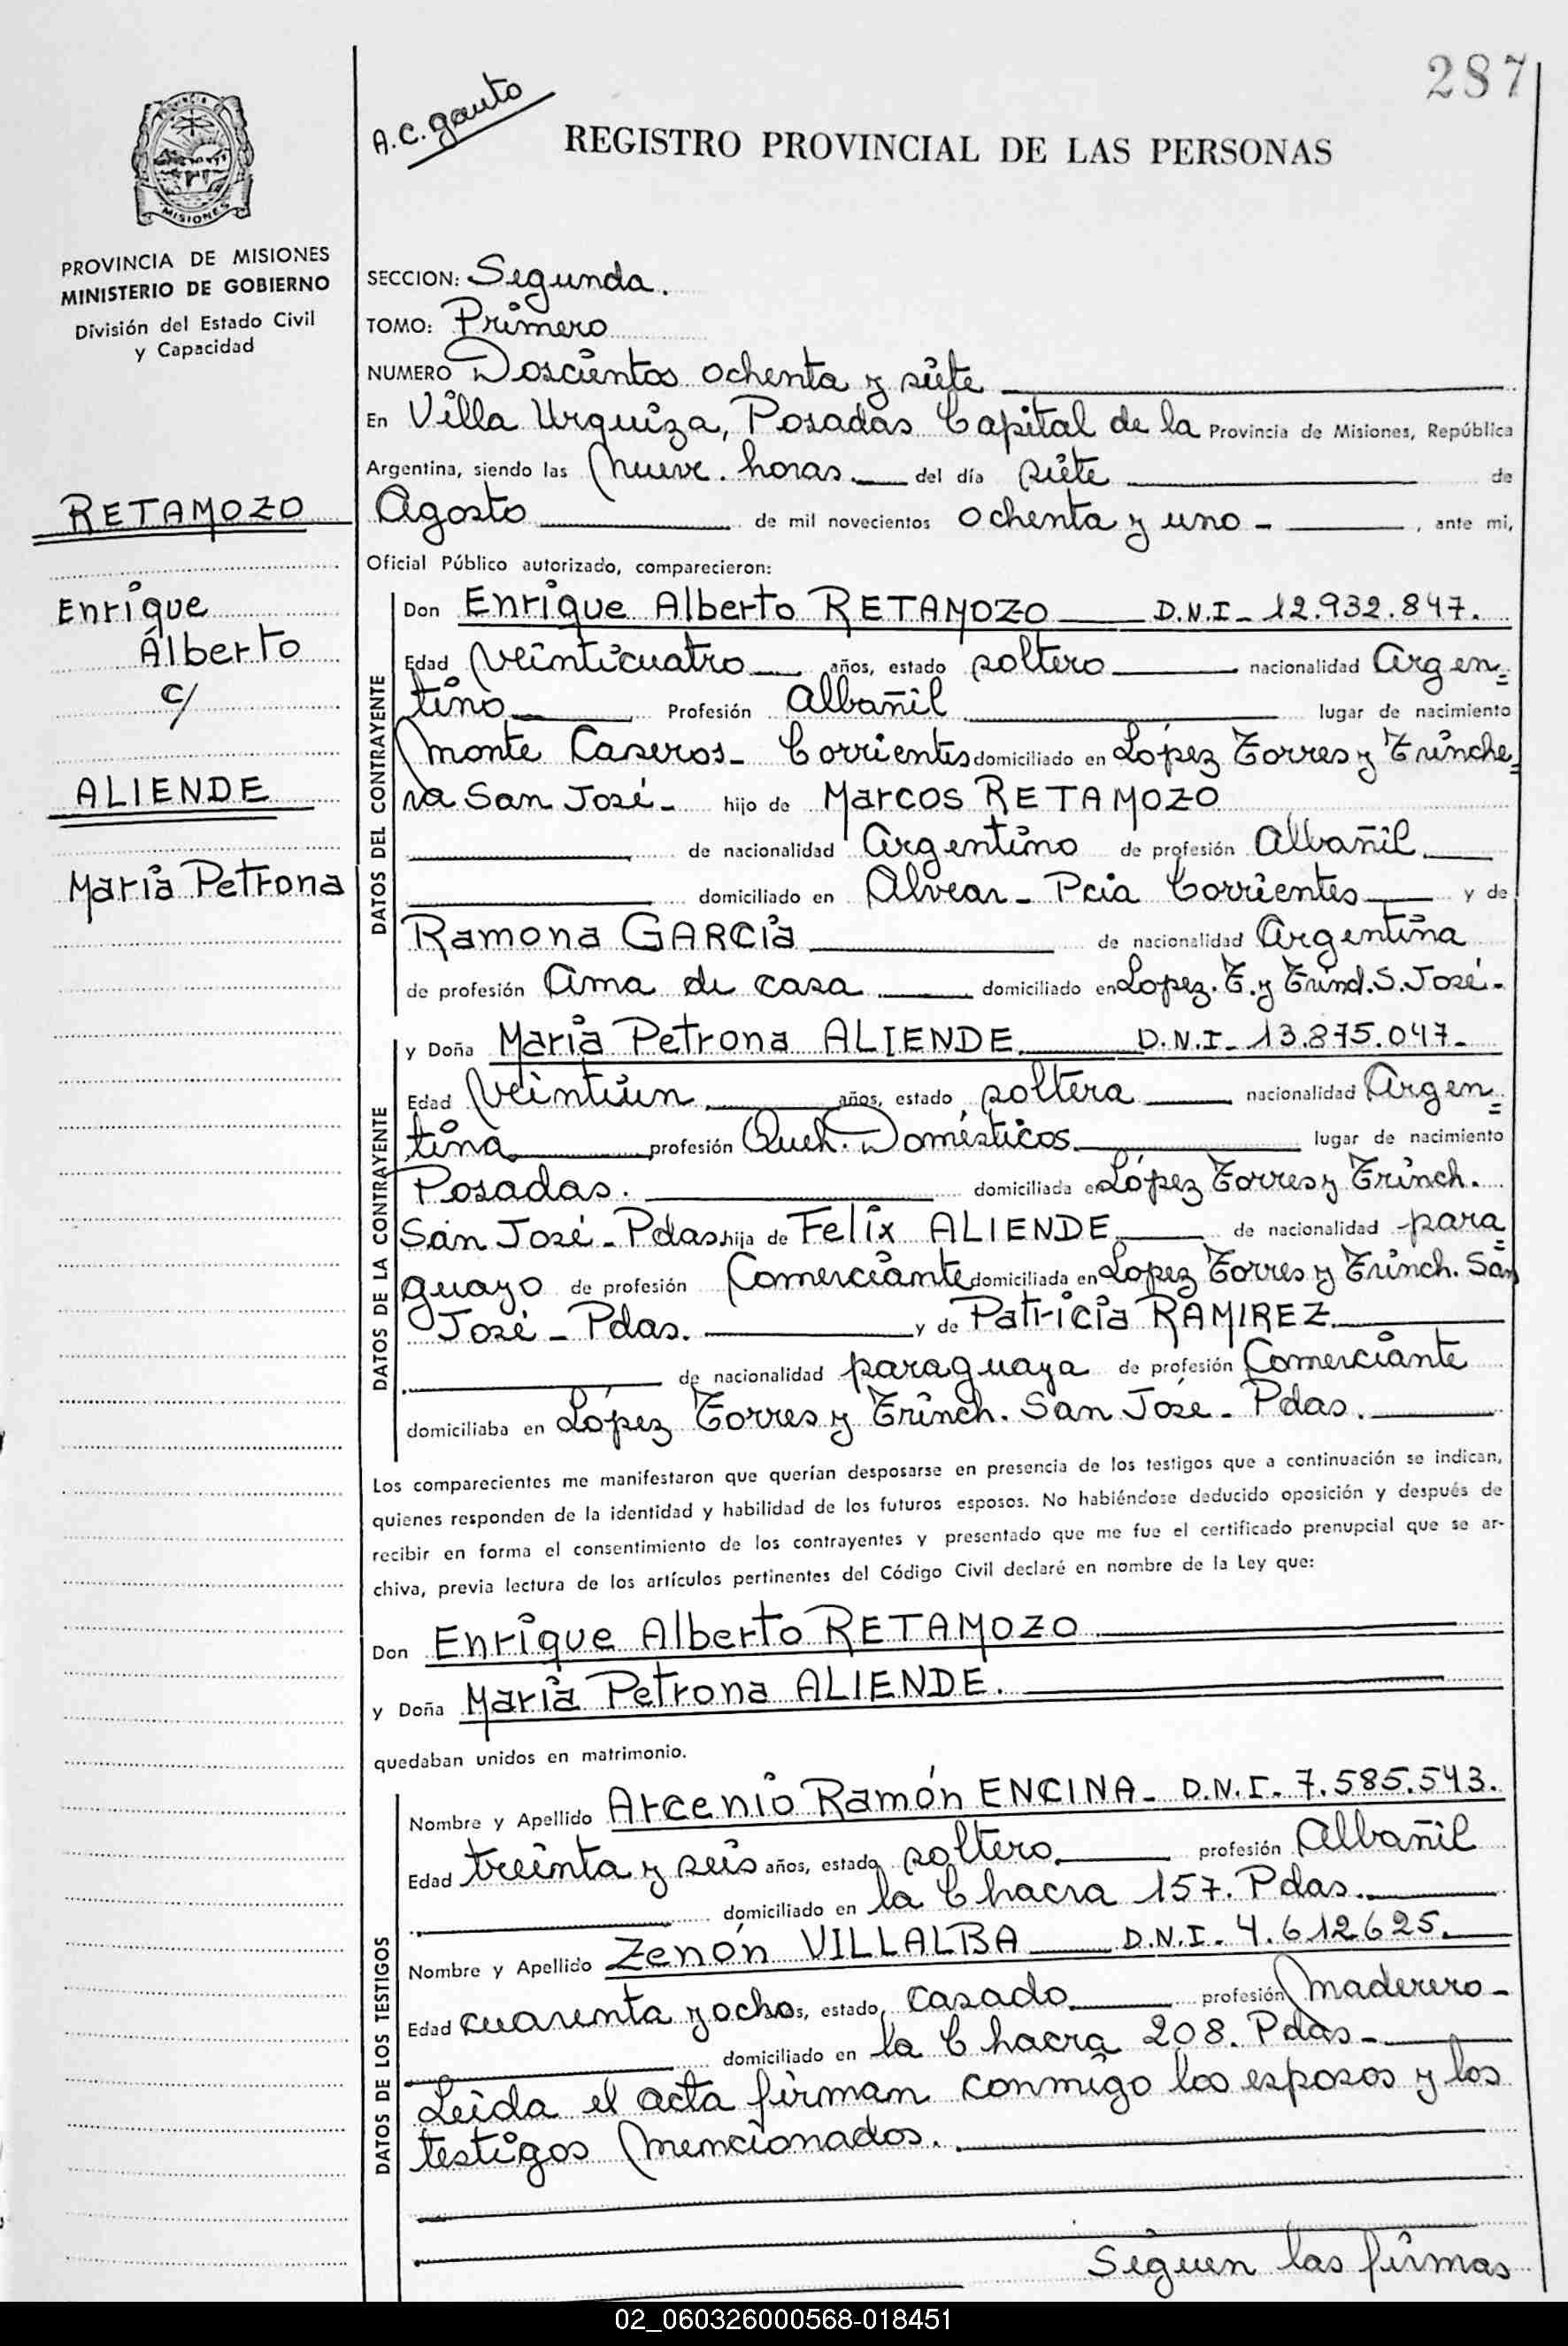 287
A.C. Gauto
REGISTRO PROVINCIAL DE LAS PERSONAS
PROVINCIA DE MISIONES
MINISTERIO DE GOBIERNO
División del Estado Civil
y Capacidad
RETAMOZO
Enrique
Alberto
c/
ALIENDE
María Petrona
SECCION: Segunda.
TOMO: Primero
NUMERO Doscientos ochenta y siete
En Villa Urquiza, Posadas Capital de la Provincia de Misiones, República
Argentina, siendo las Nueve horas del día siete de
Agosto de mil novecientos ochenta y uno - , ante mi,
Oficial Público autorizado, comparecieron:
DATOS DEL CONTRAYENTE
Don Enrique Alberto RETAMOZO D.N.I - 12.932.847.
Edad veinticuatro años, estado soltero nacionalidad Argen=
tino Profesión Albañil lugar de nacimiento
Monte Caseros - Corrientes domiciliado en López Torres y Trinche=
ra San José - hijo de Marcos RETAMOZO
de nacionalidad Argentino de profesión Albañil
domiciliado en Alvear - Pcia Corrientes y de
Ramona GARCía de nacionalidad Argentina
de profesión Ama de casa domiciliado en Lopez. T. y Trind. S. José -
DATOS DE LA CONTRAYENTE
y Doña María Petrona ALIENDE D.N.I - 13.875.047 -
Edad Veintiún años, estado soltera nacionalidad Argen=
tina profesión Queh. Domésticos lugar de nacimiento
Posadas. domiciliada en López Torres y Trinch.
San José - Pdas hija de Felix ALIENDE de nacionalidad para=
guayo de profesión Comerciante domiciliada en Lopez Torres y Trinch. San
José - Pdas. y de Patricia RAMIREZ
de nacionalidad paraguaya de profesión Comerciante
domiciliaba en López Torres y Trinch. San José - Pdas.
Los comparecientes me manifestaron que querían desposarse en presencia de los testigos que a continuación se indican,
quienes responden de la identidad y habilidad de los futuros esposos. No habiéndose deducido oposición y después de
recibir en forma el consentimiento de los contrayentes y presentado que me fue el certificado prenupcial que se ar-
chiva, previa lectura de los artículos pertinentes del Código Civil declaré en nombre de la Ley que:
Don Enrique Alberto RETAMOZO
y Doña María Petrona ALIENDE.
quedaban unidos en matrimonio.
DATOS DE LOS TESTIGOS
Nombre y Apellido Arcenio Ramón ENCINA - D.N.I - 7.585.543.
Edad treinta y seis años, estado soltero profesión Albañil
domiciliado en la Chacra 157. Pdas.
Nombre y Apellido Zenón VILLALBA D.N.I. 4.612625.
Edad cuarenta y ocho años, estado casado profesión Maderero -
domiciliado en la Chacra 208. Pdas -
Leida el acta firman conmigo los esposos y los
testigos mencionados.
Siguen las firmas
02_060326000568-018451